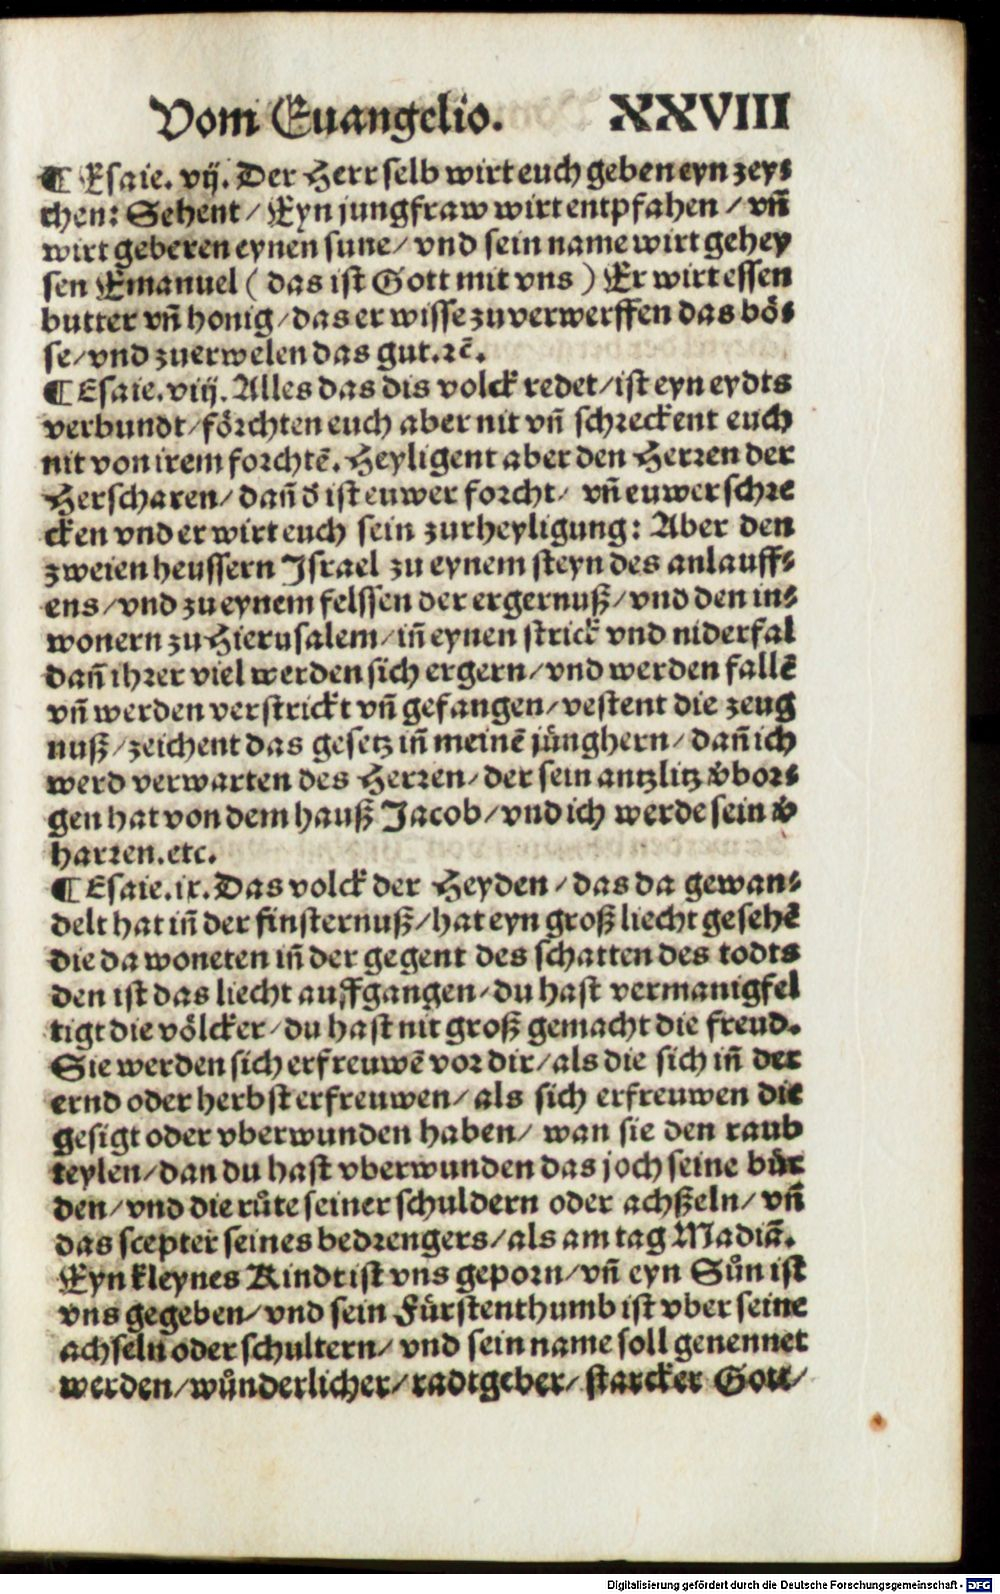 Vom Euangelio. XXVIII
¶ Esaie. vij. Der Herr selb wirt euch geben eyn zey⸗
chen: Sehent / Eyn jungfraw wirt entpfahen / vñ
wirt geberen eynen sune / vnd sein name wirt gehey
sen Emanuel ( das ist Gott mit vns ) Er wirt essen
butter vñ honig / das er wisse zuuerwerffen das bö⸗
se / vnd zuerwelen das gut. ꝛc̄.
¶ Esaie. viij. Alles das dis volck redet / ist eyn eydts
verbundt / förchten euch aber nit vñ schreckent euch
nit von irem forchtē. Heyligent aber den Herren der
Herscharen / dañ d̕ ist euwer forcht / vñ euwer schre
cken vnd er wirt euch sein zur heyligung: Aber den
zweien heussern Israel zu eynem steyn des anlauff⸗
ens / vnd zu eynem felssen der ergernuß / vnd den in⸗
wonern zu Hierusalem / iñ eynen strick vnd niderfal
dañ ihrer viel werden sich ergern / vnd werden fallē
vñ werden verstrickt vñ gefangen / vestent die zeug
nuß / zeichent das gesetz iñ meinē jünghern / dañ ich
werd verwarten des Herren / der sein antzlitz v̕bor⸗
gen hat von dem hauß Jacob / vnd ich werde sein v̕
harren. etc.
¶ Esaie. ix. Das volck der Heyden / das da gewan⸗
delt hat iñ der finsternuß / hat eyn groß liecht gesehē
die da woneten iñ der gegent des schatten des todts
den ist das liecht auffgangen / du hast vermanigfel
tigt die völcker / du hast nit groß gemacht die freud.
Sie werden sich erfreuwē vor dir / als die sich iñ der
ernd oder herbst erfreuwen / als sich erfreuwen die
gesigt oder vberwunden haben / wan sie den raub
teylen / dan du hast vberwunden das joch seine bür
den / vnd die růte seiner schuldern oder achßeln / vñ
das scepter seines bedrengers / als am tag Madiā.
Eyn kleynes Kindt ist vns geporn / vñ eyn Sůn ist
vns gegeben / vnd sein Fürstenthumb ist vber seine
achseln oder schultern / vnd sein name soll genennet
werden / wůnderlicher / radtgeber / starcker Gott /
Digitalisierung gefördert durch die Deutsche Forschungsgemeinschaft - DFG